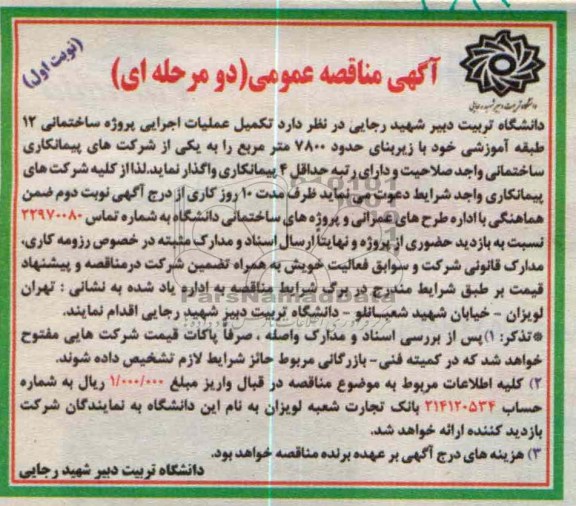 (نوبت اول)
آگهی مناقصه عمومی(دو مرحله ای)
دانشگاه تربیت دبیر شهید رجایی
دانشگاه تربیت دبیر شهید رجایی در نظر دارد تکمیل عملیات اجرایی پروژه ساختمانی ۱۲
طبقه آموزشی خود با زیربنای حدود ۷۸۰۰ متر مربع را به یکی از شرکت های پیمانکاری
ساختمانی واجد صلاحیت و دارای رتبه حداقل ۴ پیمانکاری واگذار نماید.لذا از کلیه شرکت های
پیمانکاری واجد شرایط دعوت می نماید ظرف مدت ۱۰ روز کاری از درج آگهی نوبت دوم ضمن
هماهنگی با اداره طرح های عمرانی و پروژه های ساختمانی دانشگاه به شماره تماس ۲۲۹۷۰۰۸۰
نسبت به بازدید حضوری از پروژه و نهایتاً ارسال اسناد و مدارک مثبته در خصوص رزومه کاری،
مدارک قانونی شرکت و سوابق فعالیت خویش به همراه تضمین شرکت درمناقصه و پیشنهاد
قیمت بر طبق شرایط مندرج در برگ شرایط مناقصه به اداره یاد شده به نشانی : تهران
لویزان - خیابان شهید شعبانلو - دانشگاه تربیت دبیر شهید رجایی اقدام نمایند.
ParsNamadData
*تذکر: ۱)پس از بررسی اسناد و مدارک واصله ، صرفاً پاکات قیمت شرکت هایی مفتوح
خواهد شد که در کمیته فنی- بازرگانی مربوط حائز شرایط لازم تشخیص داده شوند.
۲) کلیه اطلاعات مربوط به موضوع مناقصه در قبال واریز مبلغ ۱/۰۰۰/۰۰۰ ریال به شماره
حساب ۲۱۴۱۲۰۵۳۴ بانک تجارت شعبه لویزان به نام این دانشگاه به نمایندگان شرکت
بازدید کننده ارائه خواهد شد.
۳) هزینه های درج آگهی بر عهده برنده مناقصه خواهد بود.
دانشگاه تربیت دبیر شهید رجایی